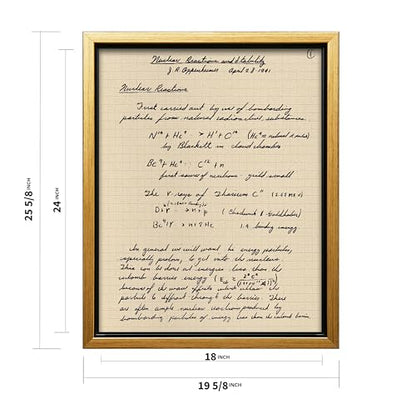 Nuclear Reactions and Stability
J. R. Oppenheimer April 23 1941
1
Nuclear Reactions
First carried out by use of bombarding
particles from natural radioactive substances.
N¹⁴ + He⁴ → H¹ + O¹⁷ (He⁴ = natural α rays)
by Blackett in cloud chambers
Be⁹ + He⁴ → C¹² + n
first source of neutrons - yield small
The γ rays of Thorium C" (2.62 MEV)
D + γ → n + p (Chadwick & Goldhaber)
Be⁹ + γ → n + 2 He 1.9 binding energy
In general we will want the energy particles,
especially protons, to get into the nucleus.
This can be done at energies less than the
coulomb barrier energy
because of the wave effects which allow the
particle to diffract through the barrier. There
are often ample nuclear reactions produced by
bombarding particles of energy less than the coulomb barrier.
25 5/8 INCH
24 INCH
18 INCH
19 5/8 INCH